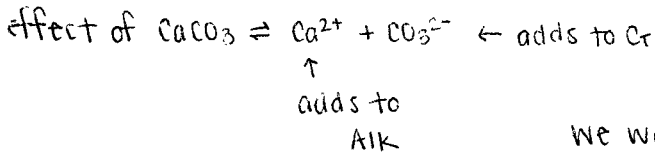 effect of CaCO3 ⇌ Ca²⁺ + CO3²⁻ ← adds to CT
↑
adds to
Alk
We